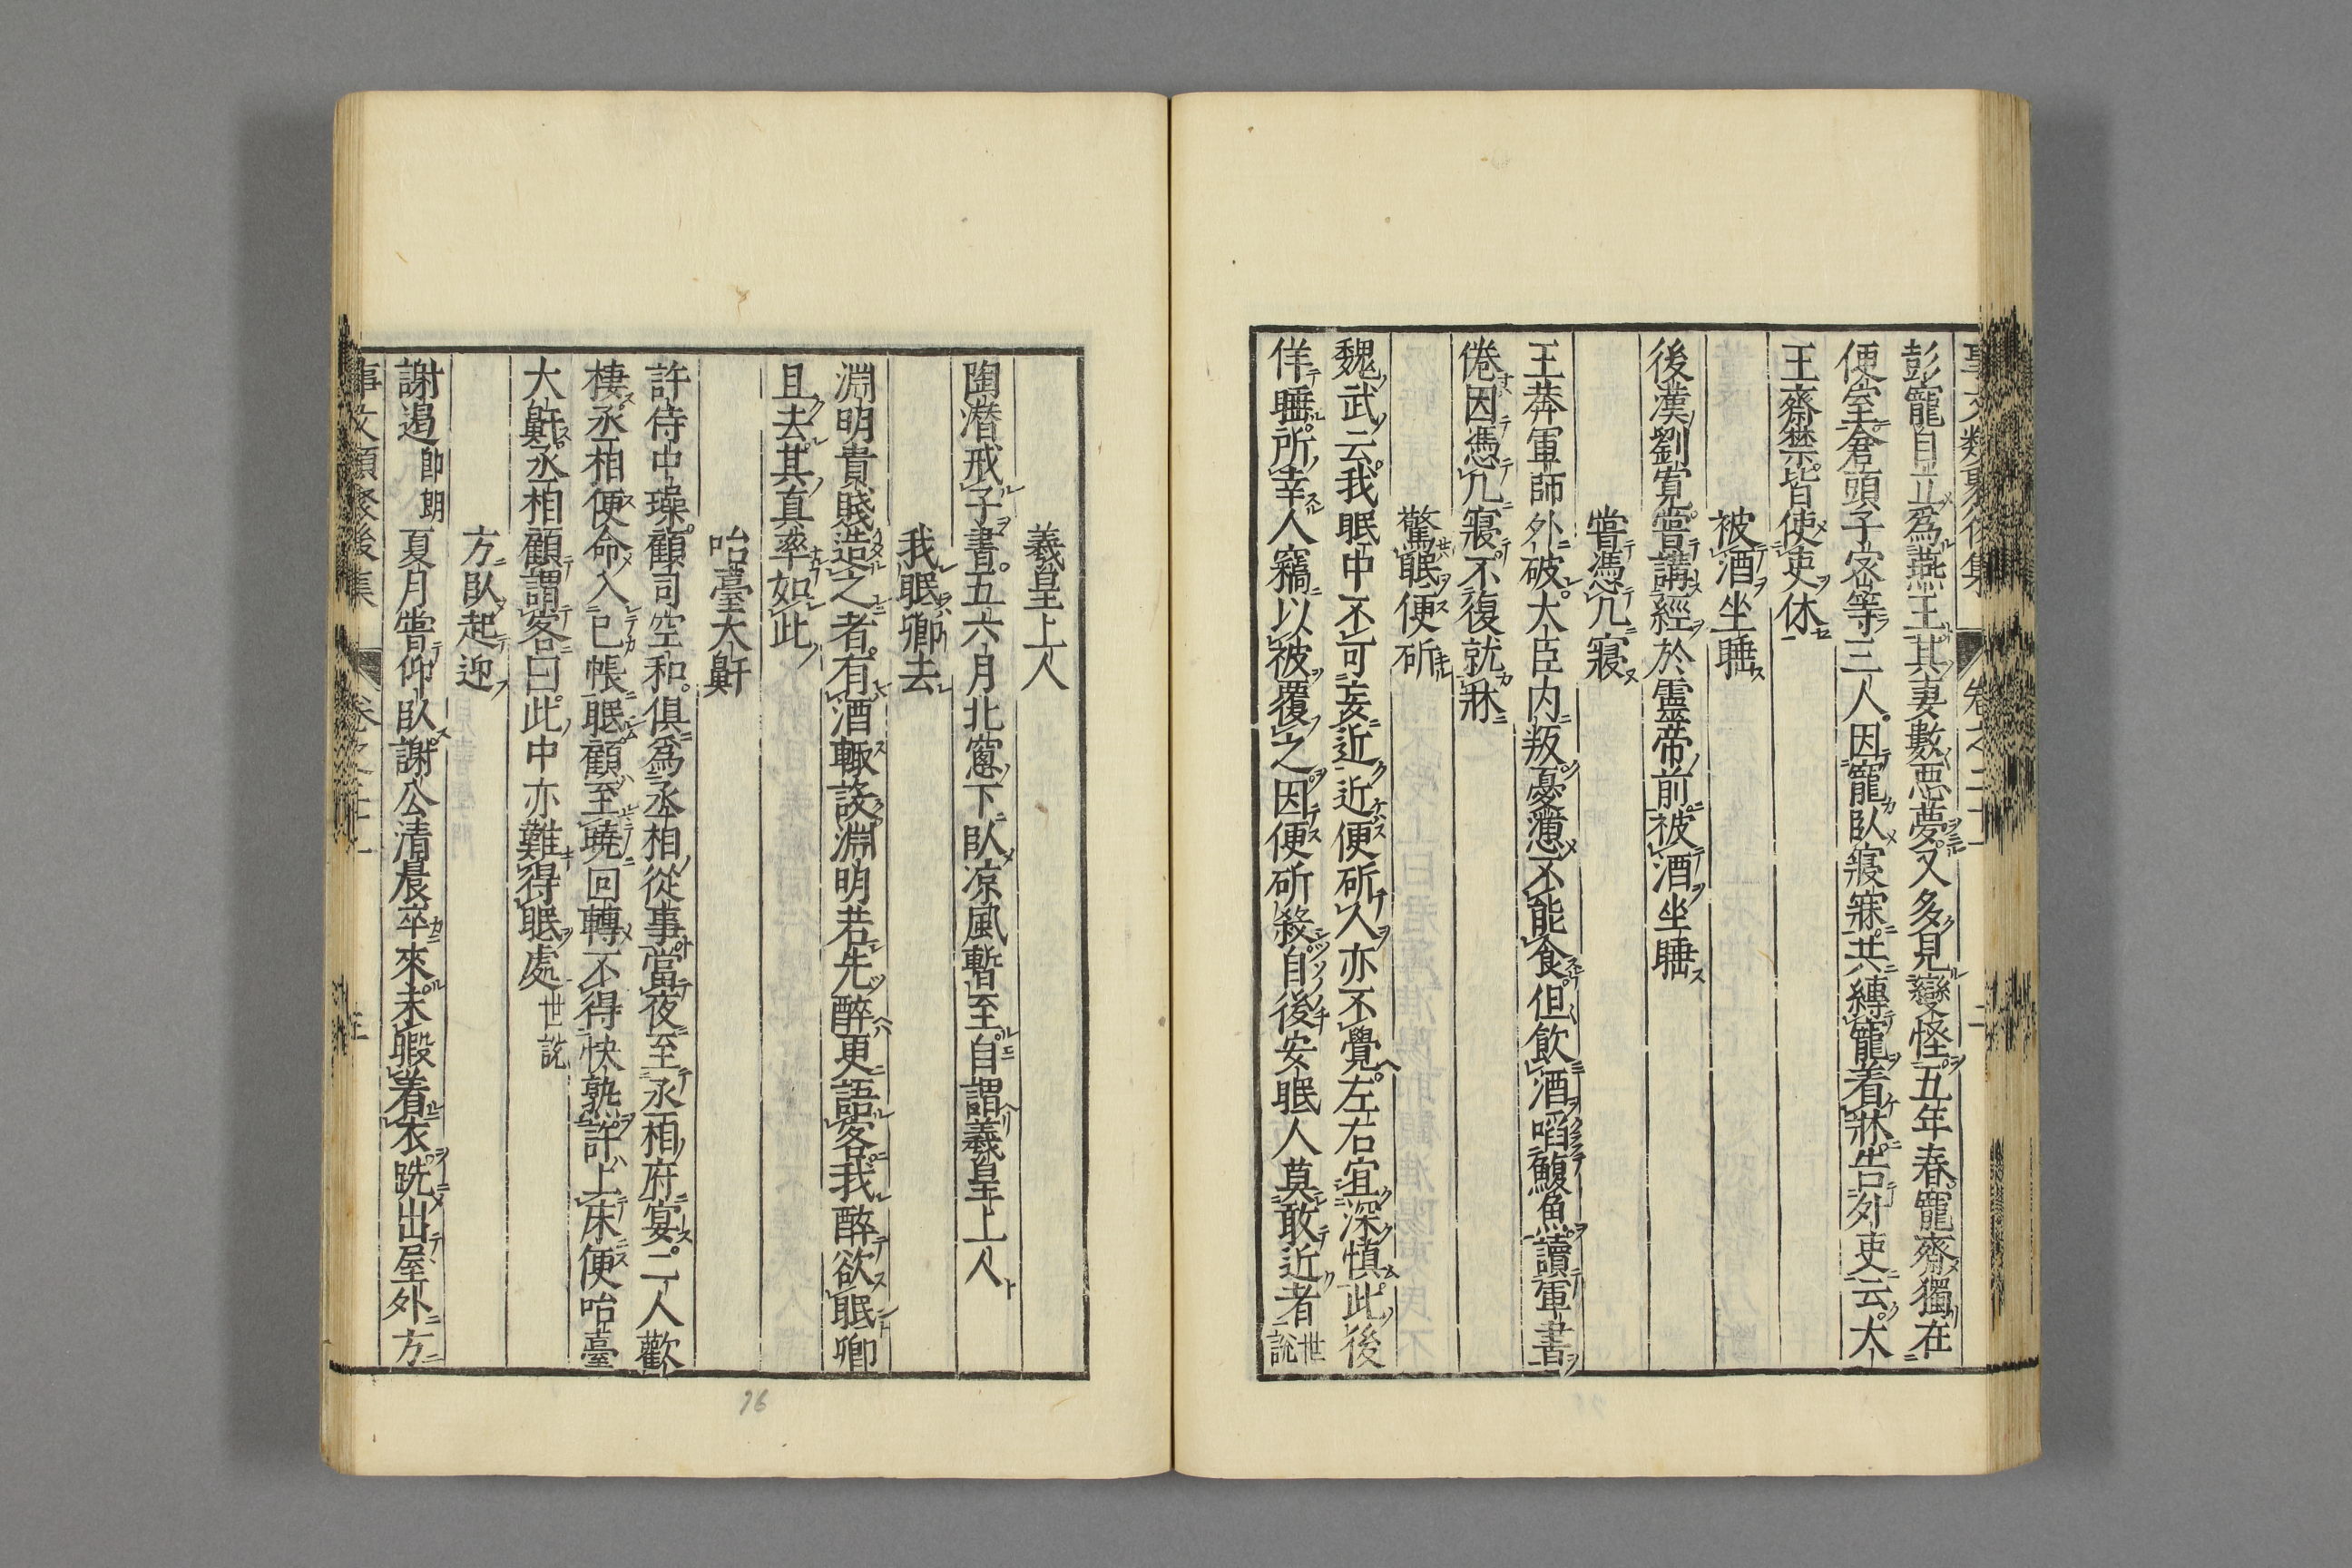 彭寵自立爲燕王其妻數惡夢又多見變怪五年春寵齋獨在
便室倉頭子密等三人因寵臥寢寐共縛寵着牀告外吏云大
王齋禁皆使吏休
被酒坐睡
後漢劉寛嘗講經於靈帝前被酒坐睡
嘗憑几寢
王莽軍師外破大臣内叛憂懣不能食但飲酒啗鰒魚讀軍書
倦因憑几寢不復就牀
驚眠便斫
魏武云我眠中不可妄近近便斫人亦不覺左右宜深慎此後
佯睡所幸人竊以被覆之因便斫殺自後安眠人莫敢近者世說
羲皇上人
陶潜戒子書五六月北窓下臥凉風暫至自謂羲皇上人
我眠卿去
淵明貴賤造之者有酒輙設淵明若先醉更語客我醉欲眠卿
且去其真率如此
咍臺大鼾
許侍中璪顧司空和俱爲丞相從事當夜至丞相府宴二人歡
棲丞相便命入已帳眠顧至曉回轉不得快熟許上床便咍臺
大鼾丞相顧謂客曰此中亦難得眠處世說
方臥起迎
謝遏卽朗夏月嘗仰臥謝公清晨卒來未暇着衣跣出屋外方
事文類聚後集 卷之二十一